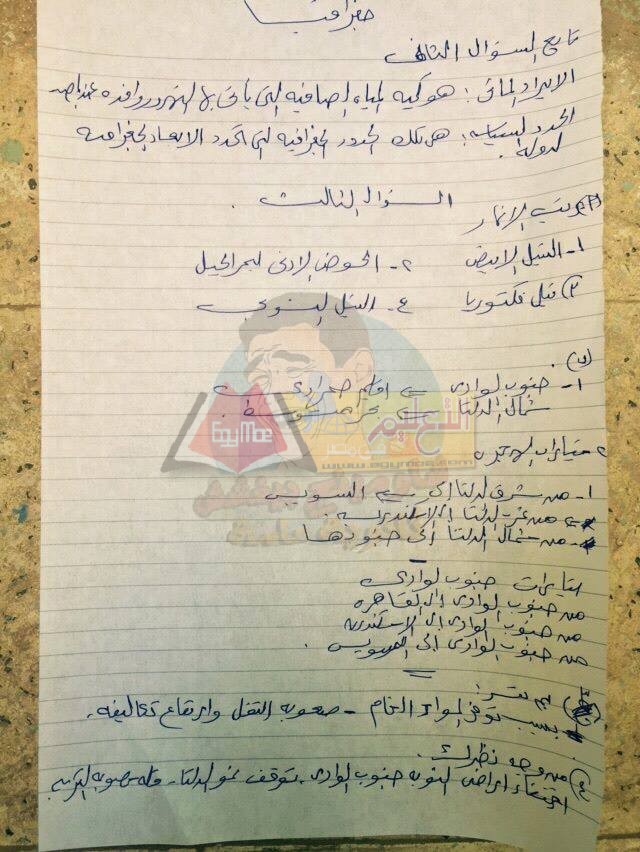 جغرافيا
تابع السؤال الثانى
الايراد المائى : هو كمية المياه الصافية التى يأتى بها النهر وروافده عند
الحدود السياسية : هى تلك الحدود الجغرافية التى تحدد الابعاد الجغرافية
لدولة .
السؤال الثالث .
ترتيب الانهار
١- النيل الابيض ٢- الحوض الادنى لبحر الجبل
٣) نيل فكتوريا ٤- النيل النوبى
١- جنوب الوادى اقليم صحراوى
شمال الدلتا بحر متوسط .
٢ تيارات الهجرة
١- من شرق الدلتا الى السويس
من غرب الدلتا الى الاسكندرية .
- من شمال الدلتا الى جنوبها
تيارات جنوب الوادى
من جنوب الوادى الى القاهرة
من جنوب الوادى الى الاسكندرية
من جنوب الوادى الى السويس .
بم تفسر :
بسبب توفر المواد الخام - صعوبة النقل وارتفاع تكاليفه .
٤) من وجهة نظرك .
اختفاء اراضى النوبة جنوب الوادى . توقف نمو الدلتا - وقلة خصوبة التربة
EgyMoe
التعليم